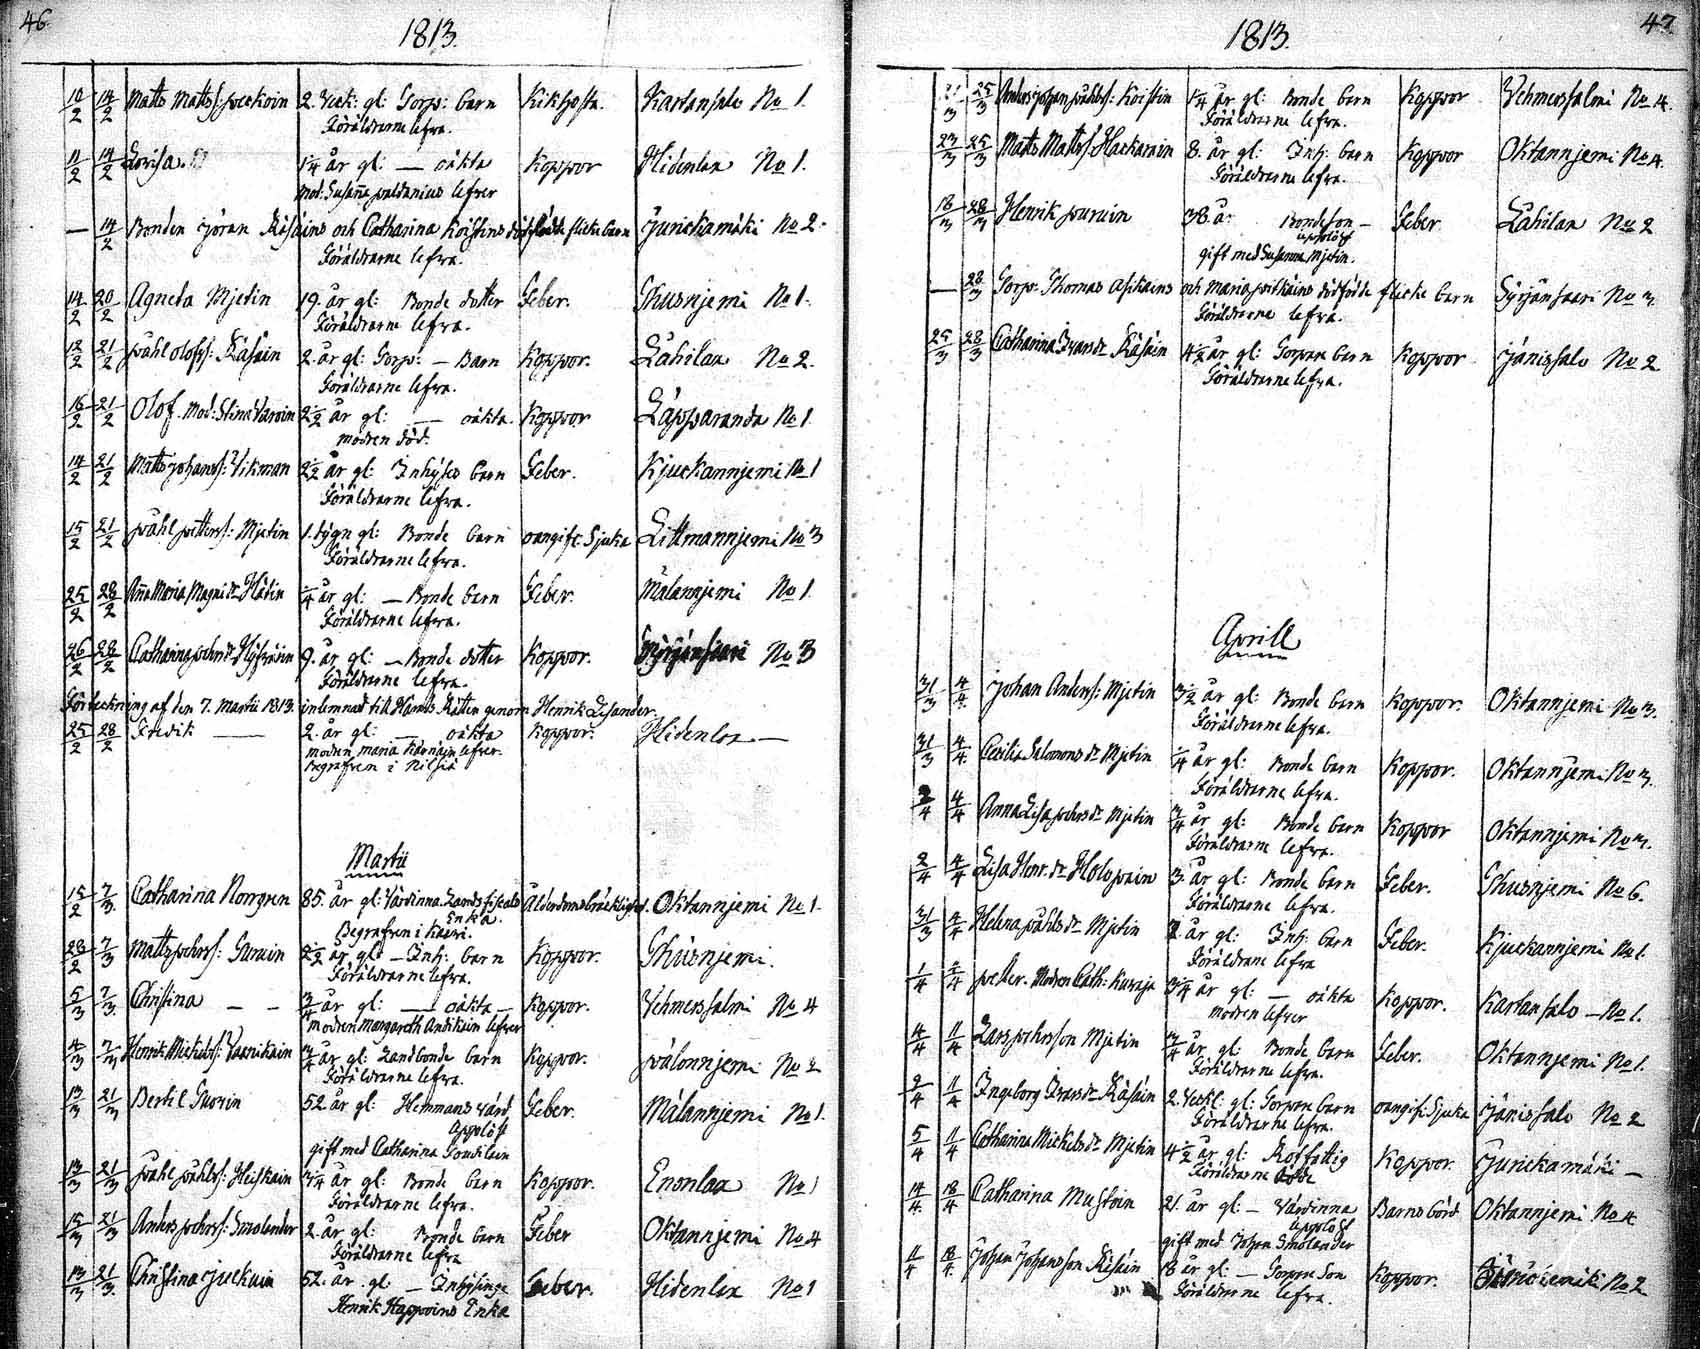 46.
1813.
10/2 14/2 Matts Mattss: 2. Veck: gl: Torp: barn Kikhosta. Kartansalo No 1.
Föräldrarne lefva.
11/2 14/2 Lovisa 1/4 år gl: — oäkta Koppor Hidenlax No 1.
Mod: Susanna lefver
— 14/2 Bonden Jöran Räsäins och Catharina dödfödde flicke barn Jurickamäki No 2.
Föräldrarne lefva.
14/2 20/2 Agneta Mjetin 19. år gl: Bonde dotter Feber. No 1.
Föräldrarne lefva.
12/2 21/2 Påhl Olofss: Räsäin 2. år gl: Torp: — Barn Koppor. Lahilax No 2.
Föräldrarne lefva.
16/2 21/2 Olof. Mod: Stina 2 1/2 år gl: — oäkta. Koppor Läpparanda No 1.
modren död.
14/2 21/2 Matts Johanss: Vikman 2 1/2 år gl: Inhyses barn Feber. Kjuckannjemi No 1
Föräldrarne lefva.
15/2 21/2 Påhl Petterss: Mjetin 1. dygn gl: Bonde barn oangifc: Sjuka Littmannjemi No 3
Föräldrarne lefva.
25/2 28/2 Anna Maria Magni dr 1/4 år gl: — Bonde barn Feber. Målannjemi No 1.
Föräldrarne lefva.
26/2 28/2 Catharina Pehrs dr 9. år gl: — Bonde dotter Koppor. No 3
Föräldrarne lefva.
Förteckning af den 7. Martii 1813. inlemnad till Härads Rätten genom Henrik Lisander.
25/2 28/2 Fredik — 2. år gl: — oäkta Koppor. Hidenlax —
modren Maria lefver.
Begrafven i Nilsiä
Martii
15/2 7/3 Catharina Norrgren 85. år gl: Värdinna. Lands fiscals Ålderdoms bräcklighet. Oktannjemi No 1.
Enka.
Begrafven i Kaavi.
28/2 7/3 Matts Pehrss: 2 1/2 år gl: — Inh: barn Koppor.
Föräldrarne lefva.
5/3 7/3 Christina — — 3/4 år gl: — oäkta — Koppor. Vehmersalmi No 4
modren Margareth lefver
4/3 7/3 Henrik Mickelss: 3/4 år gl: Landbonde barn Koppor. No 2
Föräldrarne lefva.
13/3 21/3 Bertil 52. år gl: Hemmans värd, Feber. Målannjemi No 1.
Upplöst
gift med Catharina
13/3 21/3 Påhl Påhlss: Heiskain 3/4 år gl: Bonde barn Koppor. Enonlax No 1
Föräldrarne lefva.
15/3 21/3 Anders Pehrss: Smolander 2. år gl: Bonde barn Feber Oktannjemi No 4
Föräldrarne lefva
13/3 21/3 Christina 52. år. gl. — Inhysinge Feber. Hidenlax No 1
Henrik Enka
47.
1813.
25/3 Anders Johan Påhlss: 1/4 år gl: Bonde barn Koppor Vehmersalmi No 4.
Föräldrarne lefva.
23/3 25/3 Matts Mattss: 8. år gl: Inh: barn Koppor Oktannjemi No 4.
Föräldrarne lefva.
18/3 28/3 Henrik 38. år Bondeson — Feber Lahilax No 2
upplöst
gift med Susanna Mjetin.
— 28/3 Torp: Thomas och Maria dödfödde flicke barn Syrjänsaari No 3.
Föräldrarne lefva.
25/3 28/3 Catharina Ivars dr Räsäin 4 1/2 år gl: Torpare barn Koppor Jänissalo No 2
Föräldrarne lefva.
Aprill
31/3 4/4 Johan Anderss: Mjetin 3 1/2 år gl: Bonde barn Koppor. Oktannjemi No 3.
Föräldrarne lefva.
31/3 4/4 Cecilia Salomons dr Mjetin 1/4 år gl: Bonde barn Koppor. Oktannjemi No 3.
Föräldrarne lefva.
2/4 4/4 Anna Lisa Pehrs dr Mjetin 3/4 år gl: Bonde barn Koppor Oktannjemi No 3.
Föräldrarne lefva.
2/4 4/4 Lisa Henr: dr Holopain 3. år gl: Bonde barn Feber. No 6.
Föräldrarne lefva.
31/3 4/4 Helena Påhls dr Mjetin 2. år gl: Inh: barn Feber. Kjuckannjemi No 1.
Föräldrarne lefva
1/4 4/4 Petter. Modren Cath: 3/4 år gl: — oäkta Koppor. Kartansalo — No 1.
modren lefver
4/4 11/4 Lars Pehrsson Mjetin 3/4 år gl: Bonde barn Feber. Oktannjemi No 1.
Föräldrarne lefva.
9/4 11/4 Ingeborg Ivars dr Räsäin 2. Veck: gl: Torpare barn oangif: Sjuka Jänissalo No 2
Föräldrarne lefva.
5/4 11/4 Catharina Mickels dr Mjetin 4 1/2 år gl: Rotfattig Koppor. Jurickamäki —
Föräldrarne döde
14/4 18/4 Catharina Mustoin 21. år gl: — Värdinna Barns börd Oktannjemi No 4
upplöst
gift med Johan Smolander
11/4 18/4 Johan Johansson Räsäin 18 år gl: — Torpare Son Koppor. No 2
Föräldrarne lefva.